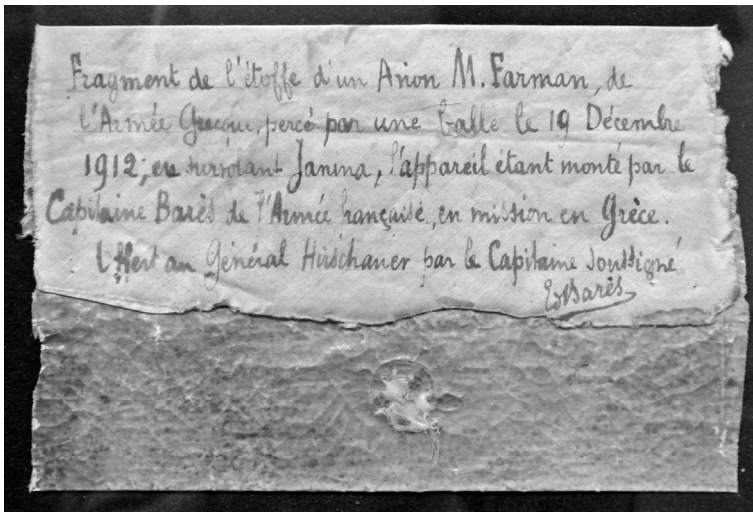 Fragment de l'étoffe d'un Avion M. Farman, de
l'Armée Grecque, percé par une balle le 19 Décembre
1912, en survolant Janina, l'appareil étant monté par le
Capitaine Barès de l'Armée française, en mission en Grèce.
Offert au Général Hirschauer par le Capitaine soussigné
EBarès